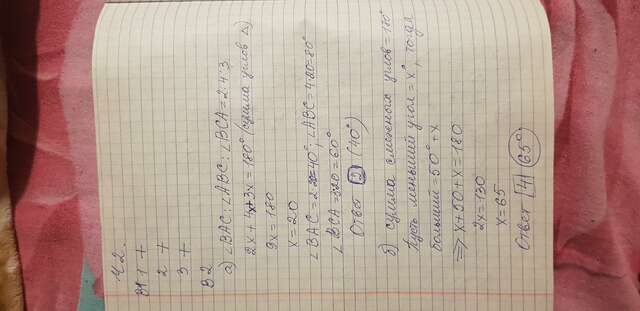 Ч 2.
В1 1 +
2 +
3 +
В 2
а) ∠BAC : ∠ABC : ∠BCA = 2:4:3
2x + 4x + 3x = 180° (сумма углов Δ)
9x = 180
x = 20
∠BAC = 2·20 = 40°; ∠ABC = 4·20 = 80°
∠BCA = 3·20 = 60°
Ответ 2 (40°)
б) сумма смежных углов = 180°
Пусть меньший угол = x°, тогда
больший = 50° + x
=> x + 50 + x = 180
2x = 130
x = 65
Ответ [4] 65°